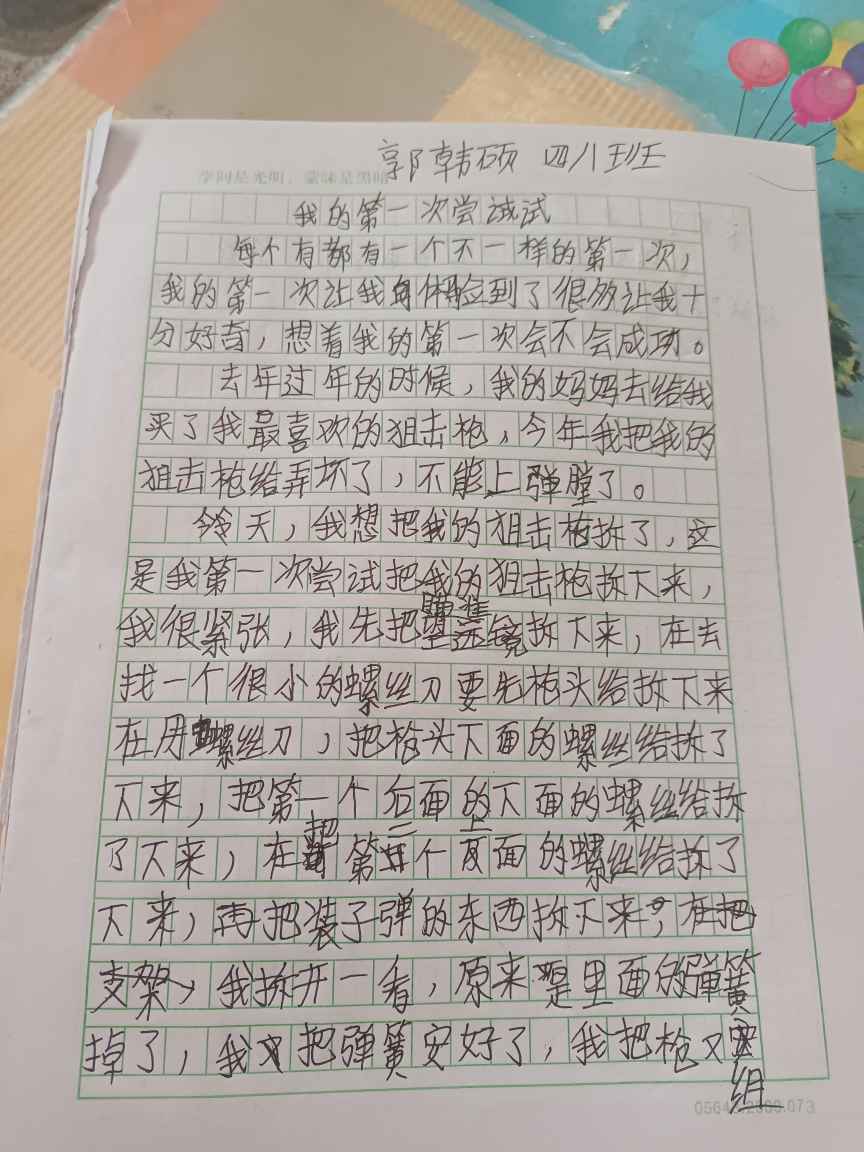 学问是光明，蒙昧是黑暗
郭韩硕 四八班
我的第一次尝试试
每个有都有一个不一样的第一次，
我的第一次让我身体验到了很多让我十
分好奇，想着我的第一次会不会成功。
去年过年的时候，我的妈妈去给我
买了我最喜欢的狙击枪，今年我把我的
狙击枪给弄坏了，不能上弹膛了。
今天，我想把我的狙击枪拆了，这
是我第一次尝试把我的狙击枪拆下来，
瞄准
我很紧张，我先把镜拆下来，在去
找一个很小的螺丝刀要先枪头给拆下来
在用螺丝刀，把枪头下面的螺丝给拆了
下来，把第一个后面的下面的螺丝给拆
把 二 上
了下来，在第个面的螺丝给拆了
下来，再把装子弹的东西拆下来，在把
支架，我拆开一看，原来是里面的弹簧
掉了，我又把弹簧安好了，我把枪又
组